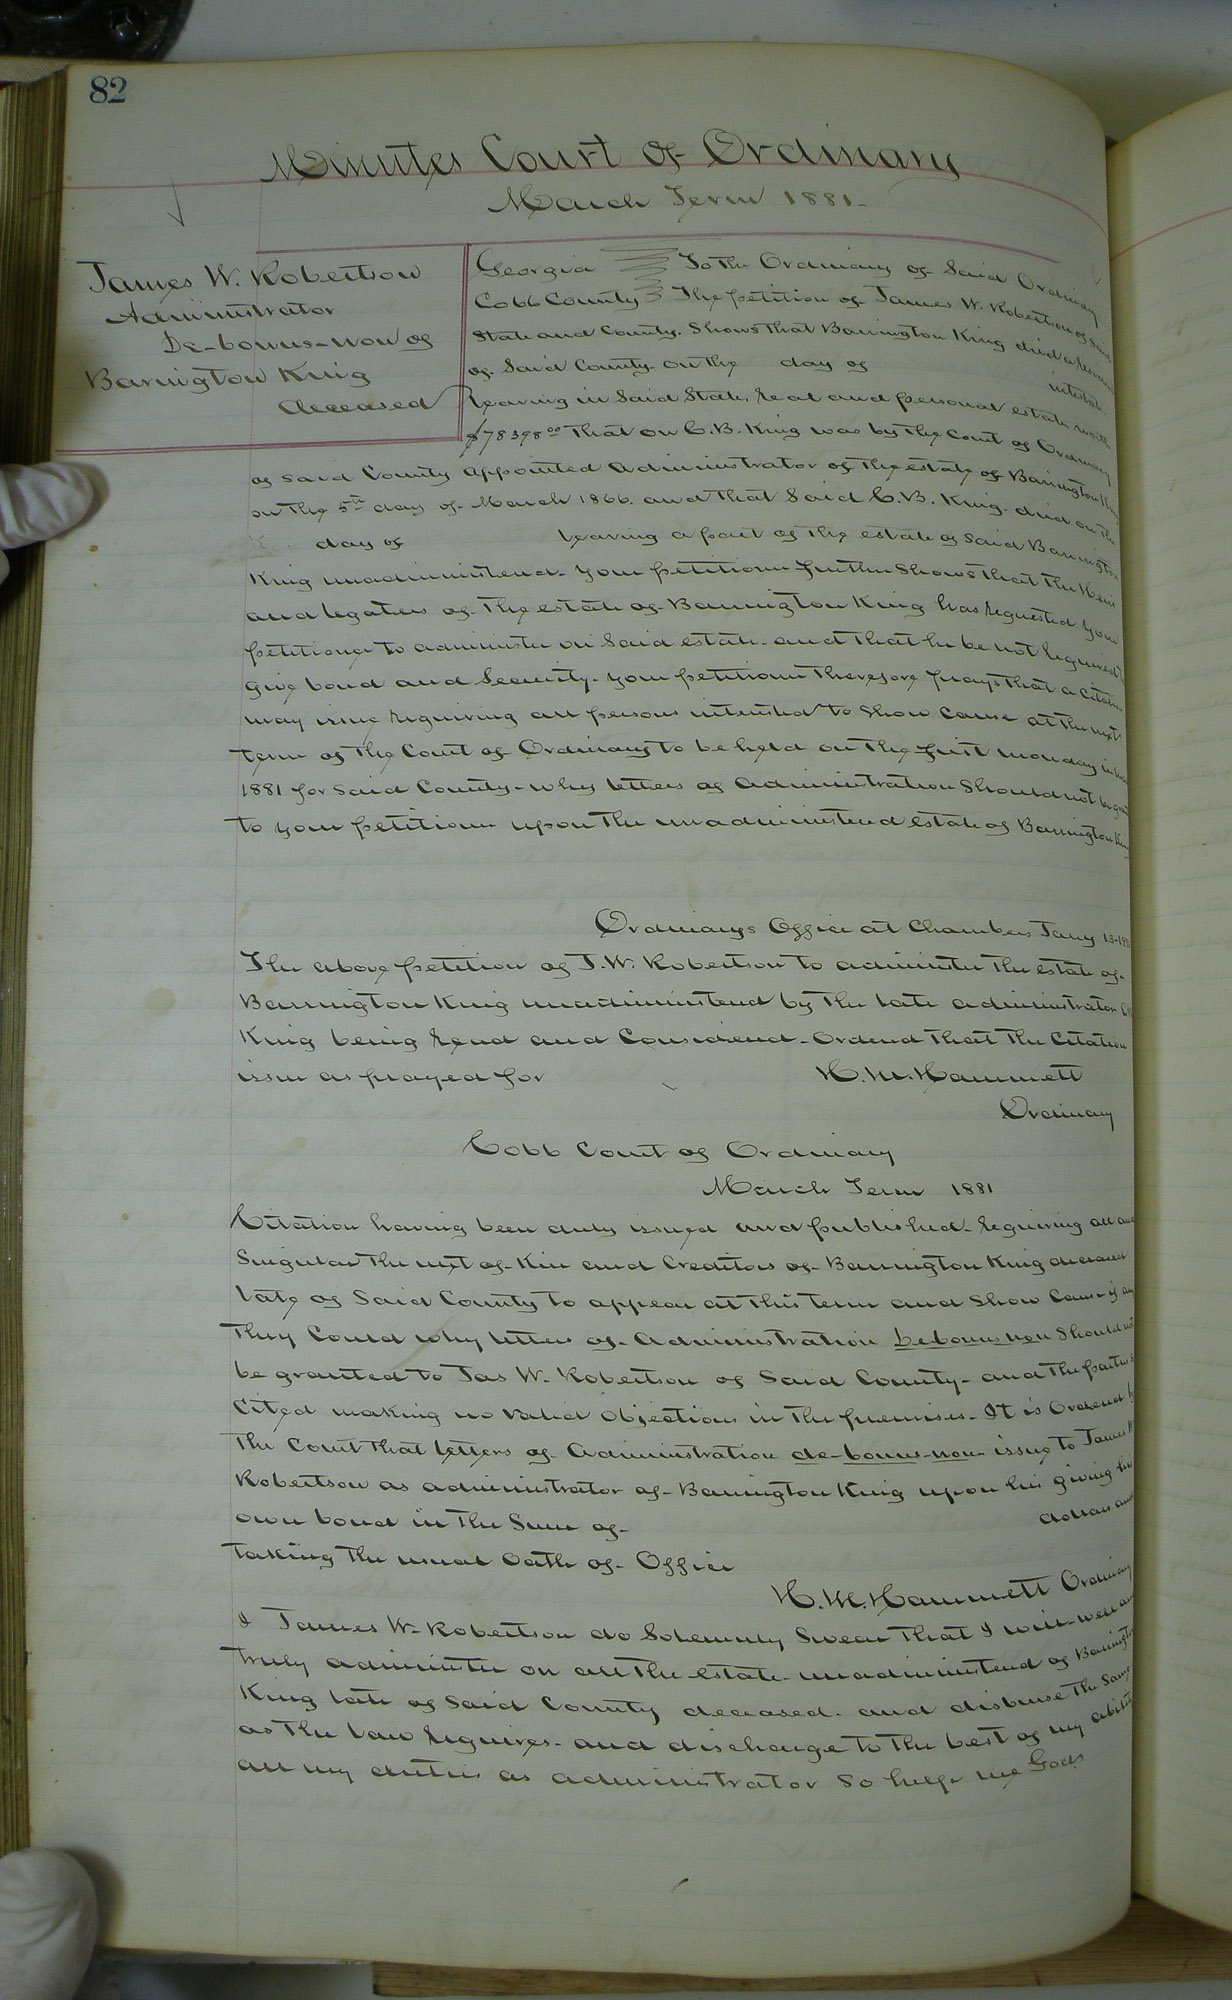 82
Minutes Court of Ordinary
March Term 1881.
James W. Robertson
Administrator
De-bonus-non of
Barrington King
deceased
Georgia To the Ordinary of Said Ordinary
Cobb County The petition of James W. Robertson of Said
State and County. Shows that Barrington King died a
of Said County on the day of intestate
leaving in Said State, real and personal estate worth
$78398.00 That on C.B. King was by the Court of Ordinary
of said County appointed administrator of the estate of Barrington King
on the 5th day of March 1866. and that Said C.B. King. died on the
day of leaving a part of the estate of Said Barrington
King unadministerd. your petitioner further Shows that the Heirs
and legatees of the estate of Barrington King has requested your
petitioner to administer on Said estate. and that he be not required to
give bond and Security. your petitioner therefore prays that a citation
may issue requiring all persons intersted to Show cause at the next
term of the Court of Ordinary to be held on the first monday in
1881 for Said County. why letters of administration Should not be
to your petitioner upon the unadministerd estate of Barrington King
Ordinarys Office at Chambers Jany 13-
The above petition of J.W. Robertson to administer the estate of
Barrington King unadministerd by the late administrator
King being read and Considerd. Orderd that the Citation
issue as prayed for H.M. Hammett
Ordinary
Cobb Court of Ordinary
March Term 1881
Citation having been duly issued and published. requiring all and
Singular the next of Kin and Creditors of Barrington King deceased
late of Said County to appear at this term and Show Cause if any
they Could why letters of Administration De bonus non Should not
be granted to Jas W. Robertson of Said County. and the parties
Cited making no valid objections in the premises. It is Orderd by
the Court that letters of Administration de-bonus-non issue to James W
Robertson as administrator of Barrington King upon his giving his
own bond in the Sum of dollars and
taking the usual oath of Office
H.M. Hammett Ordinary
I James W. Robertson do Solemnly Swear that I will well and
truly administer on all the estate unadministerd of Barrington
King late of Said County deceased. and disburse the Same
as the law requires. and discharge to the best of my ability
all my duties as administrator So help me God.